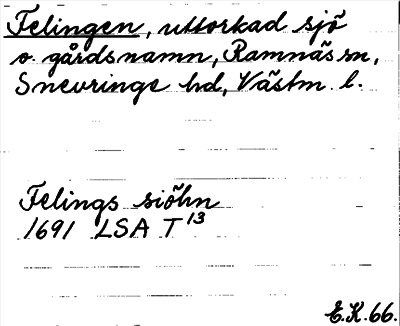 Felingen, uttorkad sjö
o. gårdsnamn, Ramnäs sn,
Snevringe hd, Västm. l.
Felings siöhn
1691 LSA T 13
E.K. 66.